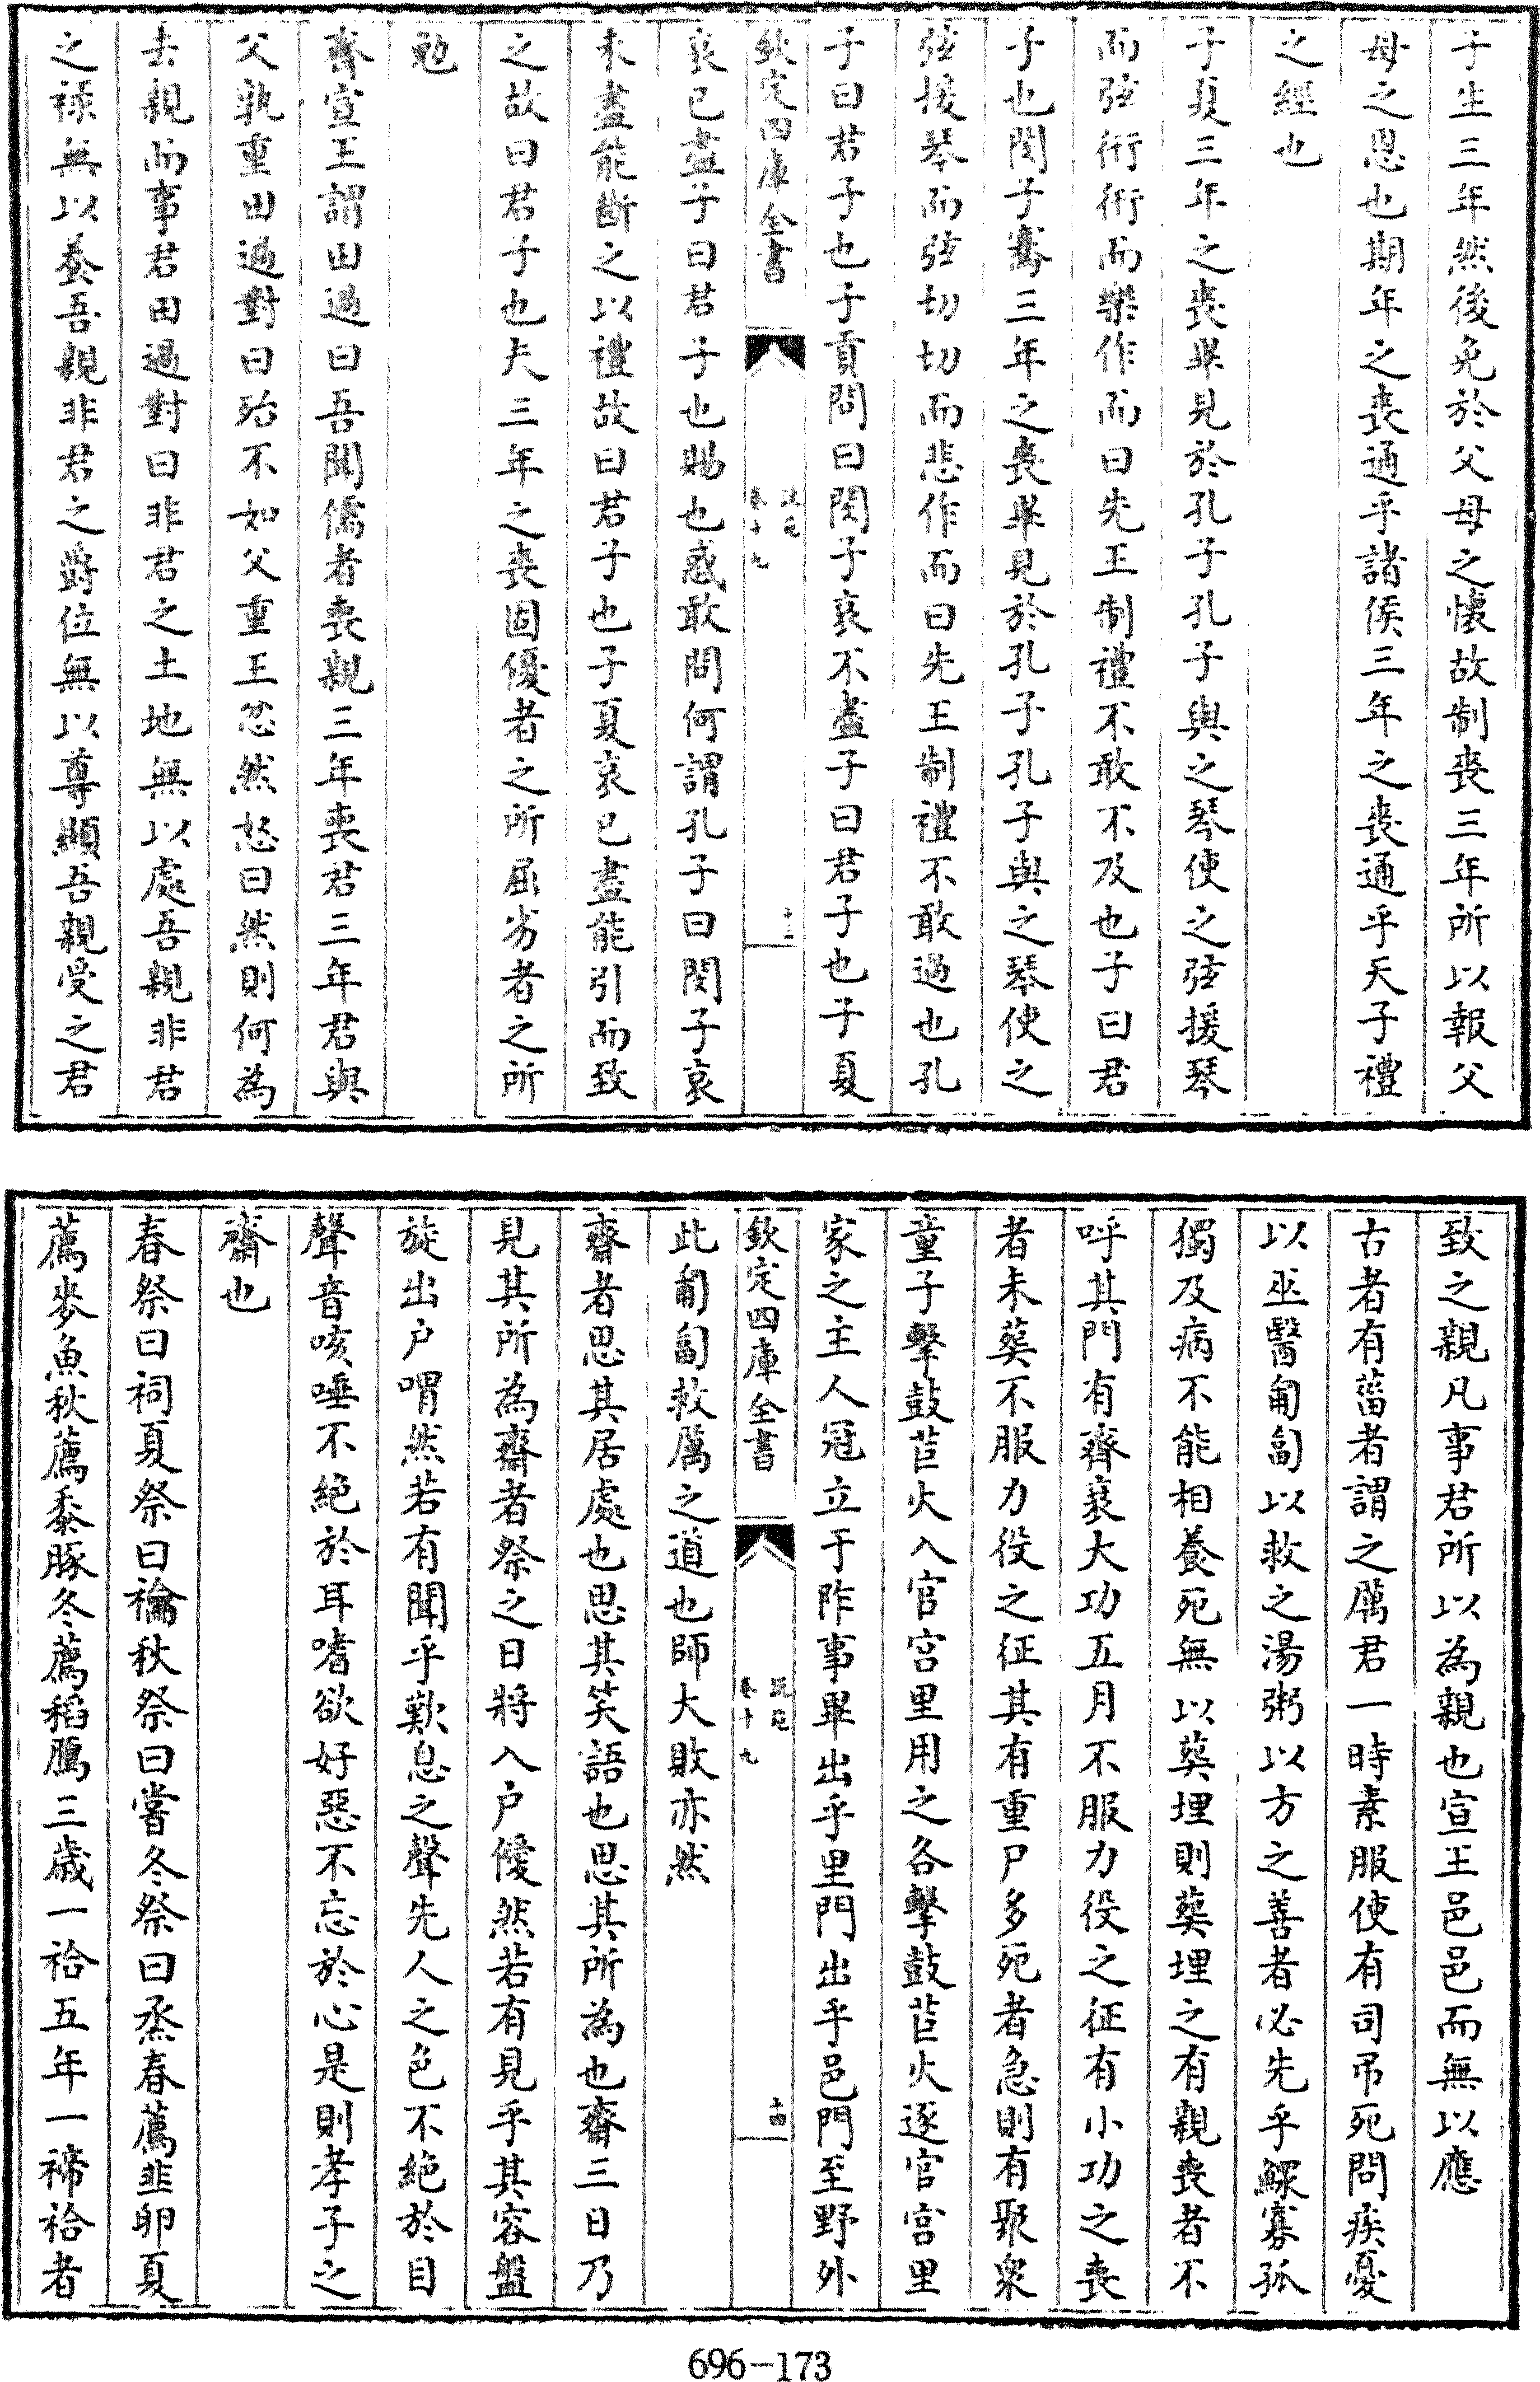 子生三年然後免於父母之懷故制喪三年所以報父
母之恩也期年之喪通乎諸侯三年之喪通乎天子禮
之經也
子夏三年之喪畢見於孔子孔子與之琴使之弦援琴
而弦衎衎而樂作而曰先王制禮不敢不及也子曰君
子也閔子騫三年之喪畢見於孔子孔子與之琴使之
弦援琴而弦切切而悲作而曰先王制禮不敢過也孔
子曰君子也子貢問曰閔子哀不盡子曰君子也子夏
欽定四庫全書
說苑
卷十九
十三
哀已盡子曰君子也賜也惑敢問何謂孔子曰閔子哀
未盡能斷之以禮故曰君子也子夏哀已盡能引而致
之故曰君子也夫三年之喪固優者之所屈劣者之所
勉
齊宣王謂田過曰吾聞儒者喪親三年喪君三年君與
父孰重田過對曰殆不如父重王忿然怒曰然則何為
去親而事君田過對曰非君之土地無以處吾親非君
之祿無以養吾親非君之爵位無以尊顯吾親受之君
致之親凡事君所以為親也宣王邑邑而無以應
古者有菑者謂之厲君一時素服使有司弔死問疾憂
以巫醫匍匐以救之湯粥以方之善者必先乎鰥寡孤
獨及病不能相養死無以葬埋則葬埋之有親喪者不
呼其門有齊衰大功五月不服力役之征有小功之喪
者未葬不服力役之征其有重尸多死者急則有聚衆
童子擊鼓苣火入官宮里用之各擊鼓苣火逐官宮里
家之主人冠立于阼事畢出乎里門出乎邑門至野外
欽定四庫全書
說苑
卷十九
十四
此匍匐救厲之道也師大敗亦然
齋者思其居處也思其笑語也思其所為也齋三日乃
見其所為齋者祭之日將入户僾然若有見乎其容盤
旋出户喟然若有聞乎歎息之聲先人之色不絶於目
聲音咳唾不絶於耳嗜欲好惡不忘於心是則孝子之
齋也
春祭曰祠夏祭曰禴秋祭曰嘗冬祭曰烝春薦韭卵夏
薦麥魚秋薦黍豚冬薦稻鴈三歳一祫五年一禘祫者
696-173